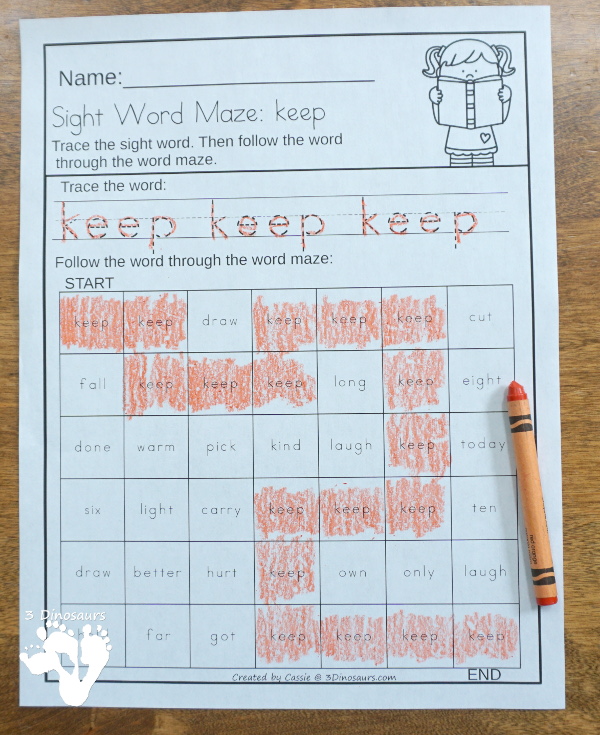 Name:
Sight Word Maze: keep
Trace the sight word. Then follow the word
through the word maze.
Trace the word:
keep keep keep
Follow the word through the word maze:
START
keep keep draw keep keep keep cut
fall keep keep keep long keep eight
done warm pick kind laugh keep today
six light carry keep keep keep ten
draw better hurt keep own only laugh
far got keep keep keep keep
Created by Cassie @ 3Dinosaurs.com
END
3 Dinosaurs